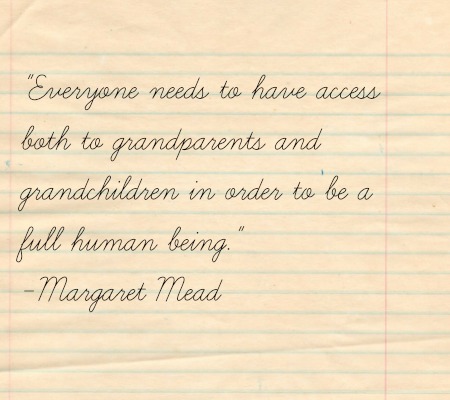 "Everyone needs to have access
both to grandparents and
grandchildren in order to be a
full human being."
-Margaret Mead